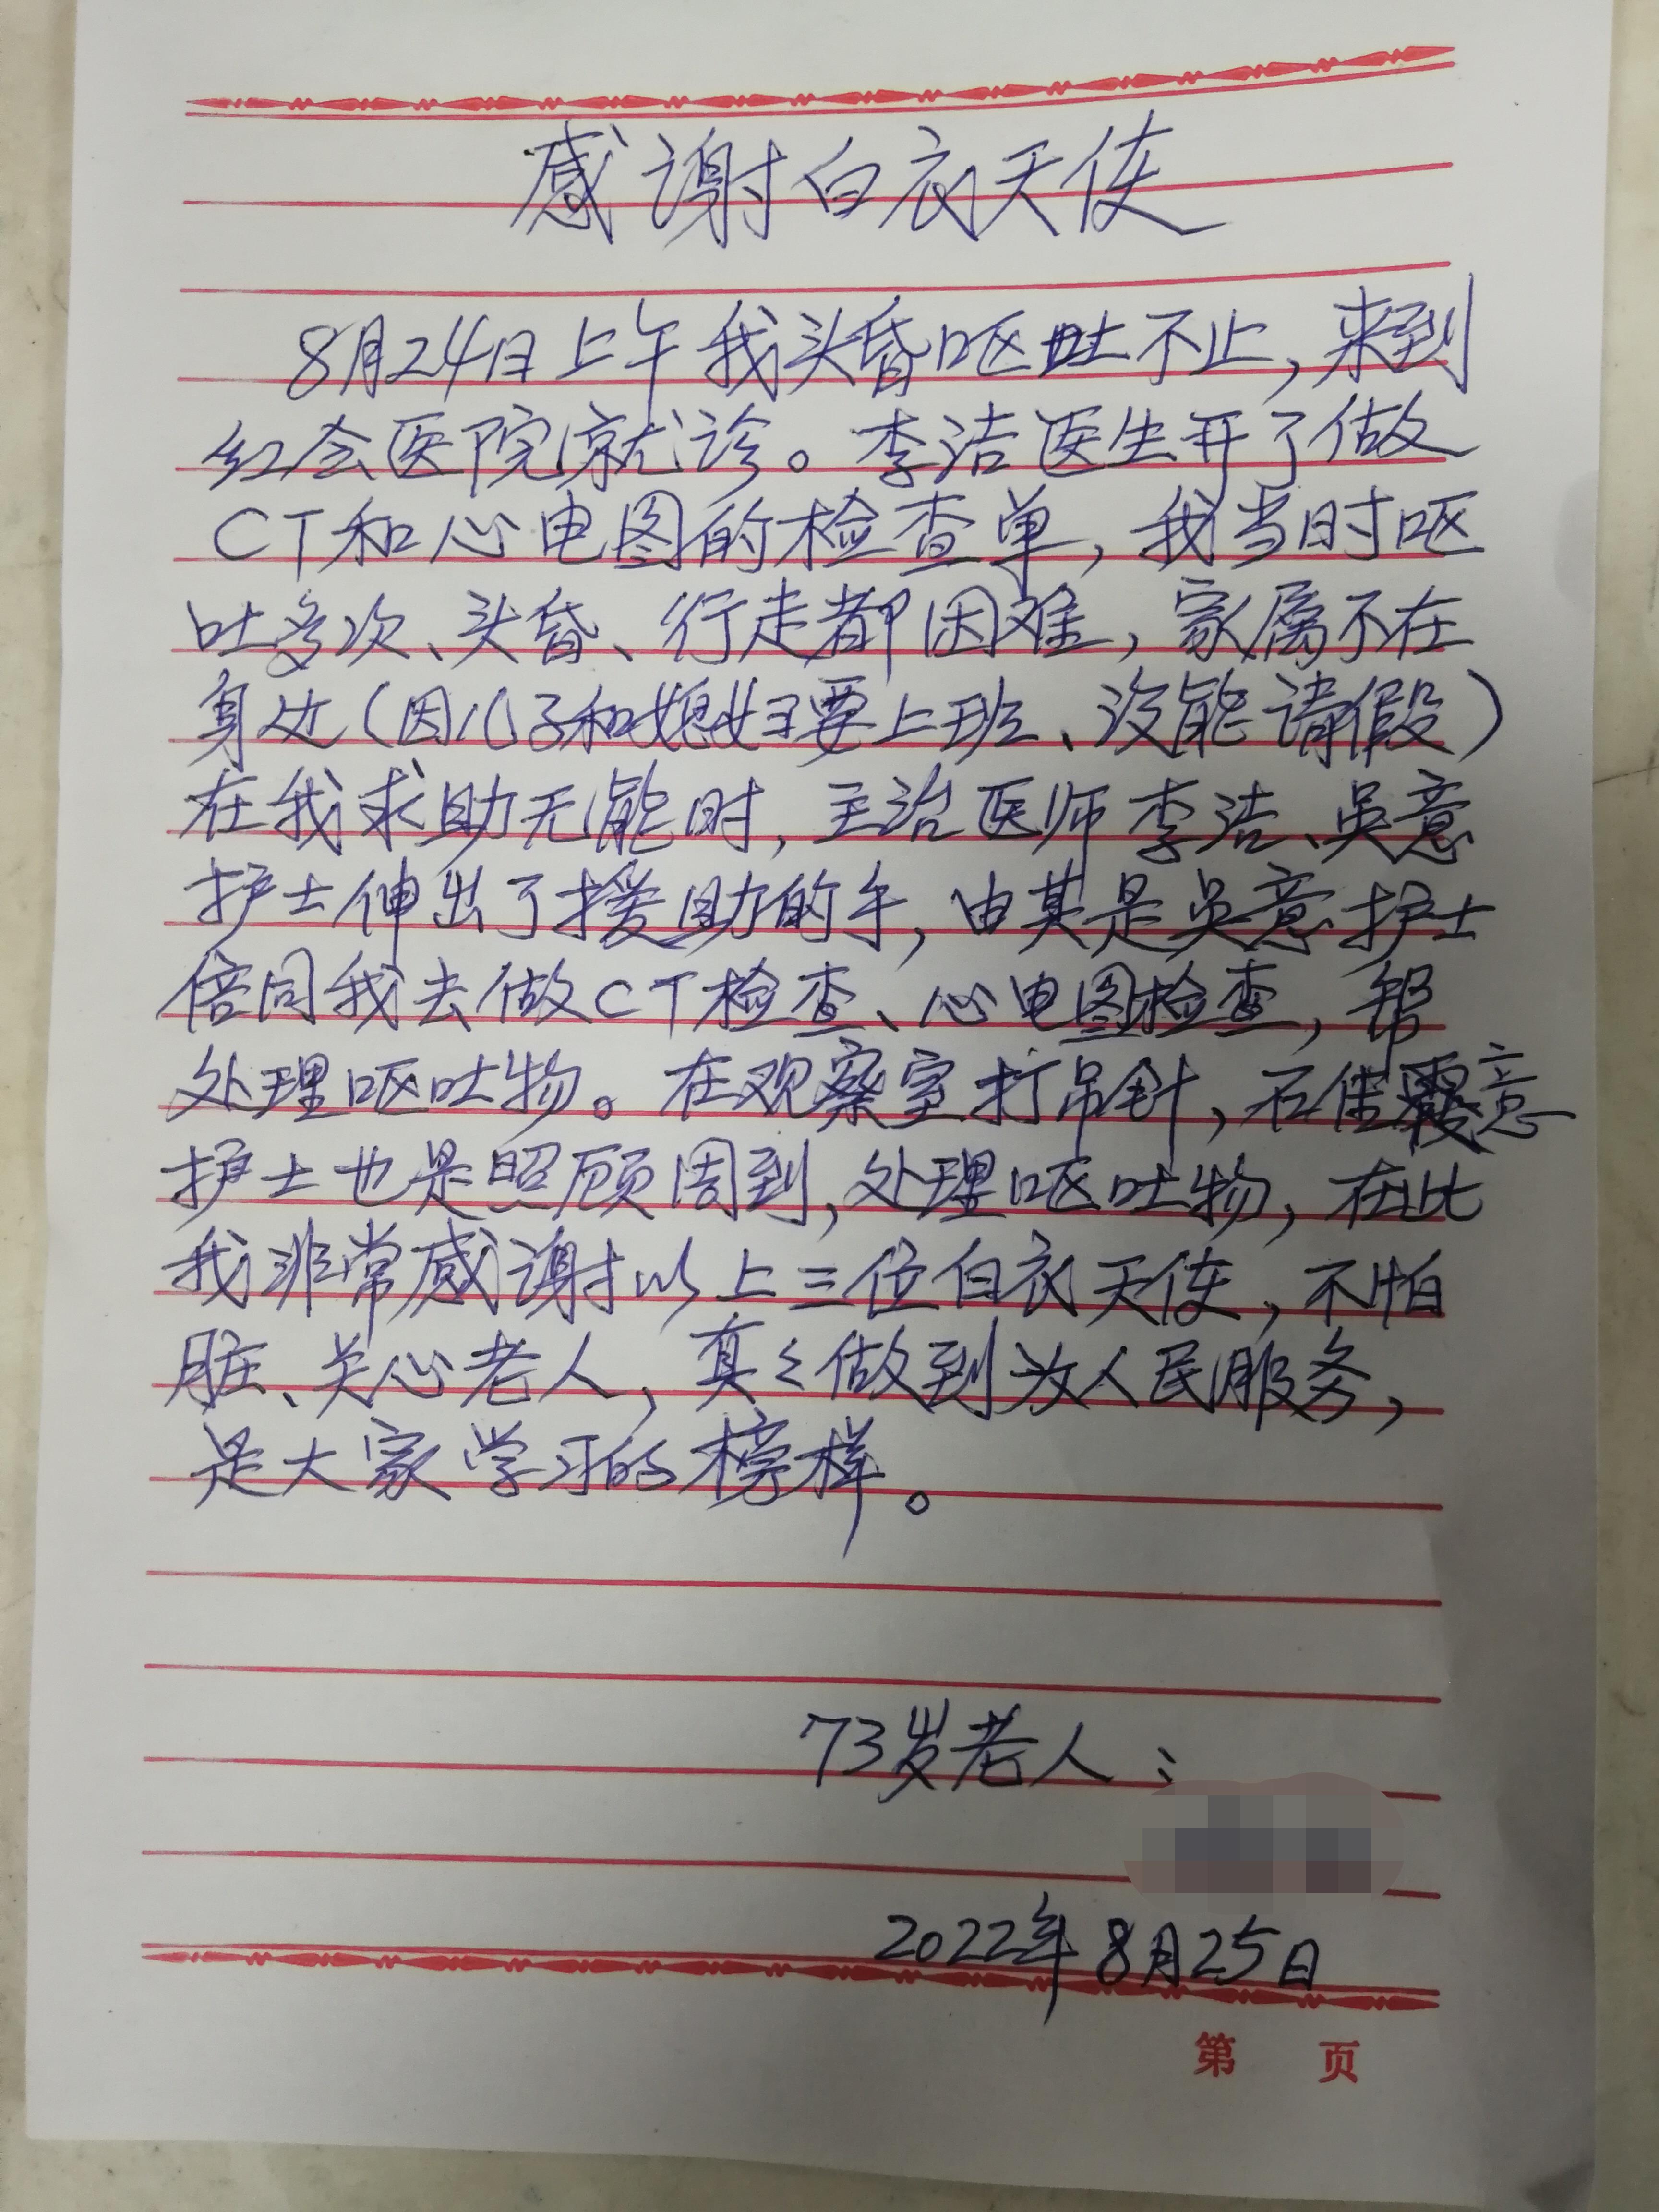 感谢白衣天使
8月24日上午我头昏呕吐不止，来到
红会医院就诊。李洁医生开了做
CT和心电图的检查单，我当时呕
吐多次、头昏、行走都困难，家属不在
身处（因儿子和媳妇要上班、没能请假）
在我求助无能时，主治医师李洁、吴意
护士伸出了援助的手，由其是吴意护士
倍同我去做CT检查、心电图检查，帮
处理呕吐物。在观察室打吊针，石佳意
护士也是照顾周到，处理呕吐物，在此
我非常感谢以上三位白衣天使，不怕
脏、关心老人，真々做到为人民服务，
是大家学习的榜样。
73岁老人：
2022年8月25日
第 页